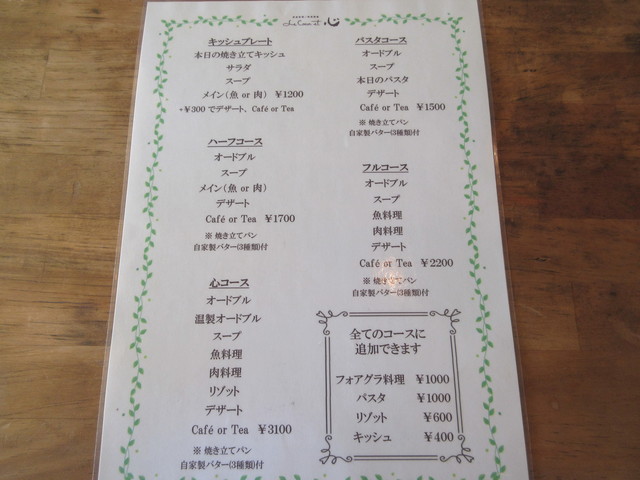 心
キッシュプレート
本日の焼き立てキッシュ
サラダ
スープ
メイン（魚 or 肉） ￥1200
+￥300でデザート、Café or Tea
ハーフコース
オードブル
スープ
メイン（魚 or 肉）
デザート
Café or Tea ￥1700
※ 焼き立てパン
自家製バター(3種類)付
心コース
オードブル
温製オードブル
スープ
魚料理
肉料理
リゾット
デザート
Café or Tea ￥3100
※ 焼き立てパン
自家製バター(3種類)付
パスタコース
オードブル
スープ
本日のパスタ
デザート
Café or Tea ￥1500
※ 焼き立てパン
自家製バター(3種類)付
フルコース
オードブル
スープ
魚料理
肉料理
デザート
Café or Tea ￥2200
※ 焼き立てパン
自家製バター(3種類)付
全てのコースに
追加できます
フォアグラ料理 ￥1000
パスタ ￥1000
リゾット ￥600
キッシュ ￥400